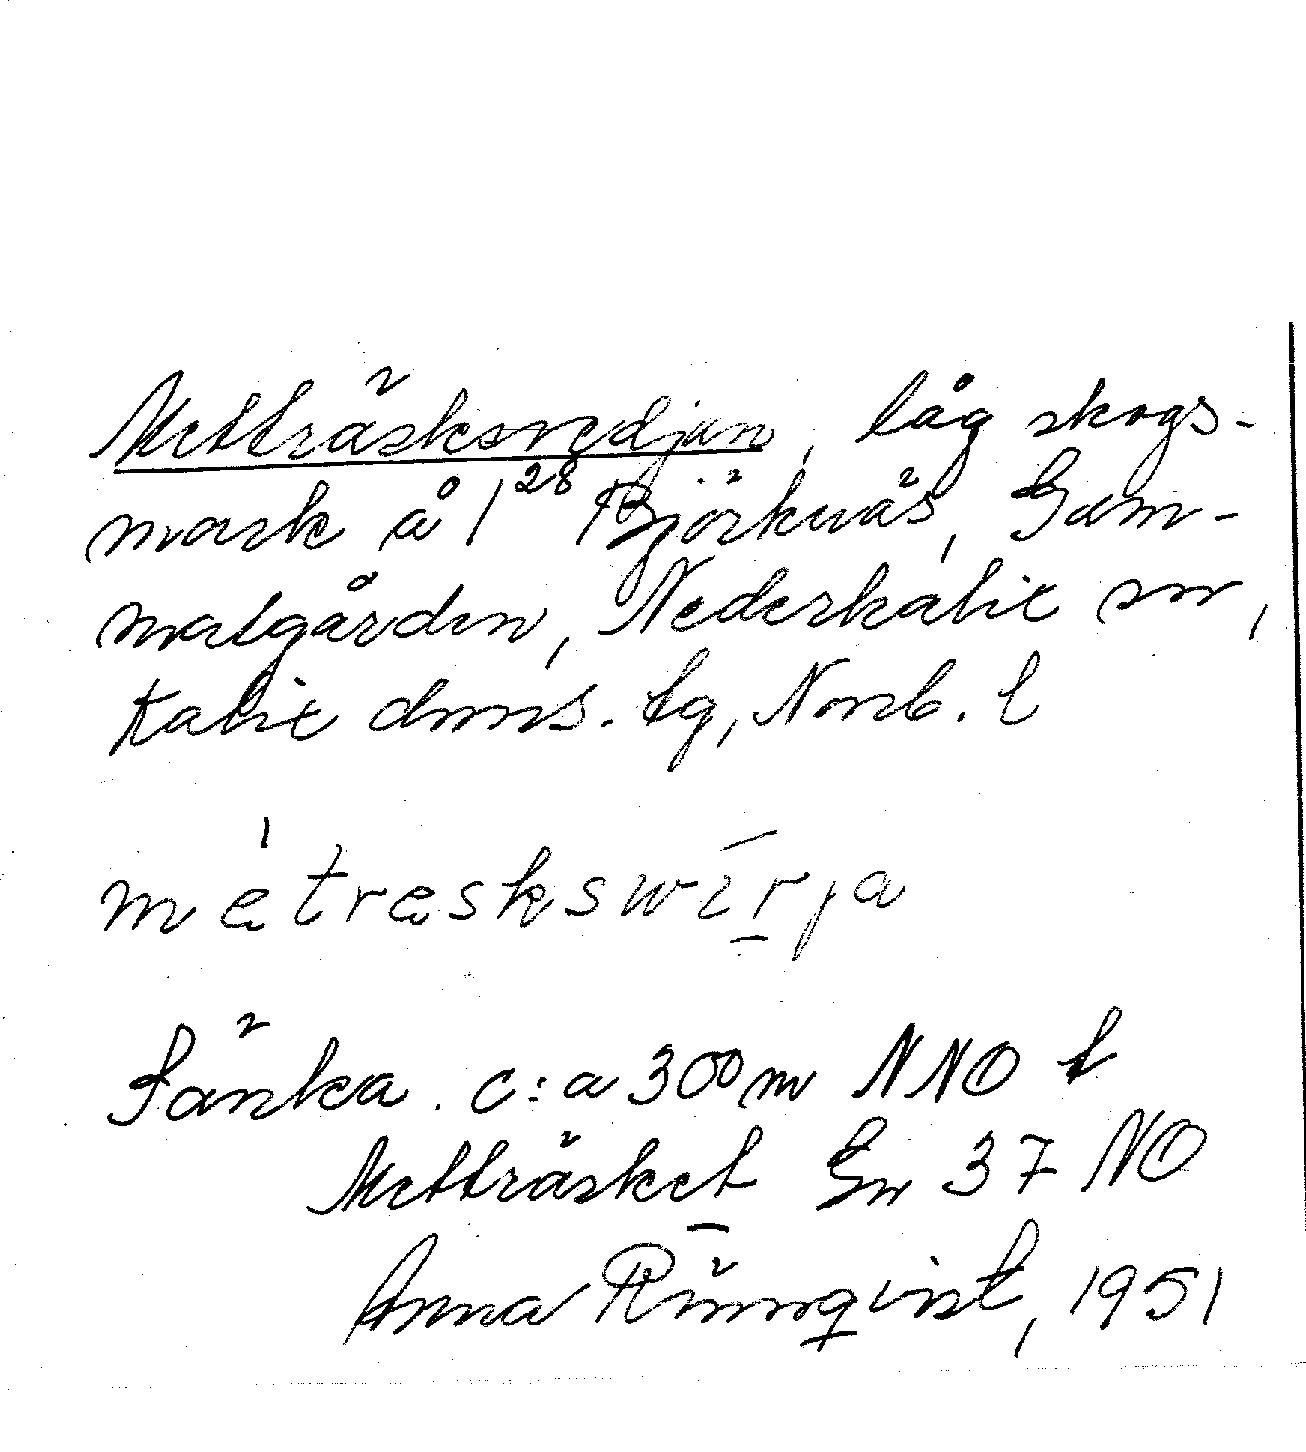 Metträsksvedjan, låg skogs-
mark å 1²⁸ Björknäs, Gam-
malgården, Nederkalix sn,
Kalix dms. tg, Norrb. l
Sänka. c:a 300 m NNO t
Metträsket Gn 37 NO
Anna Rönnqvist, 1951